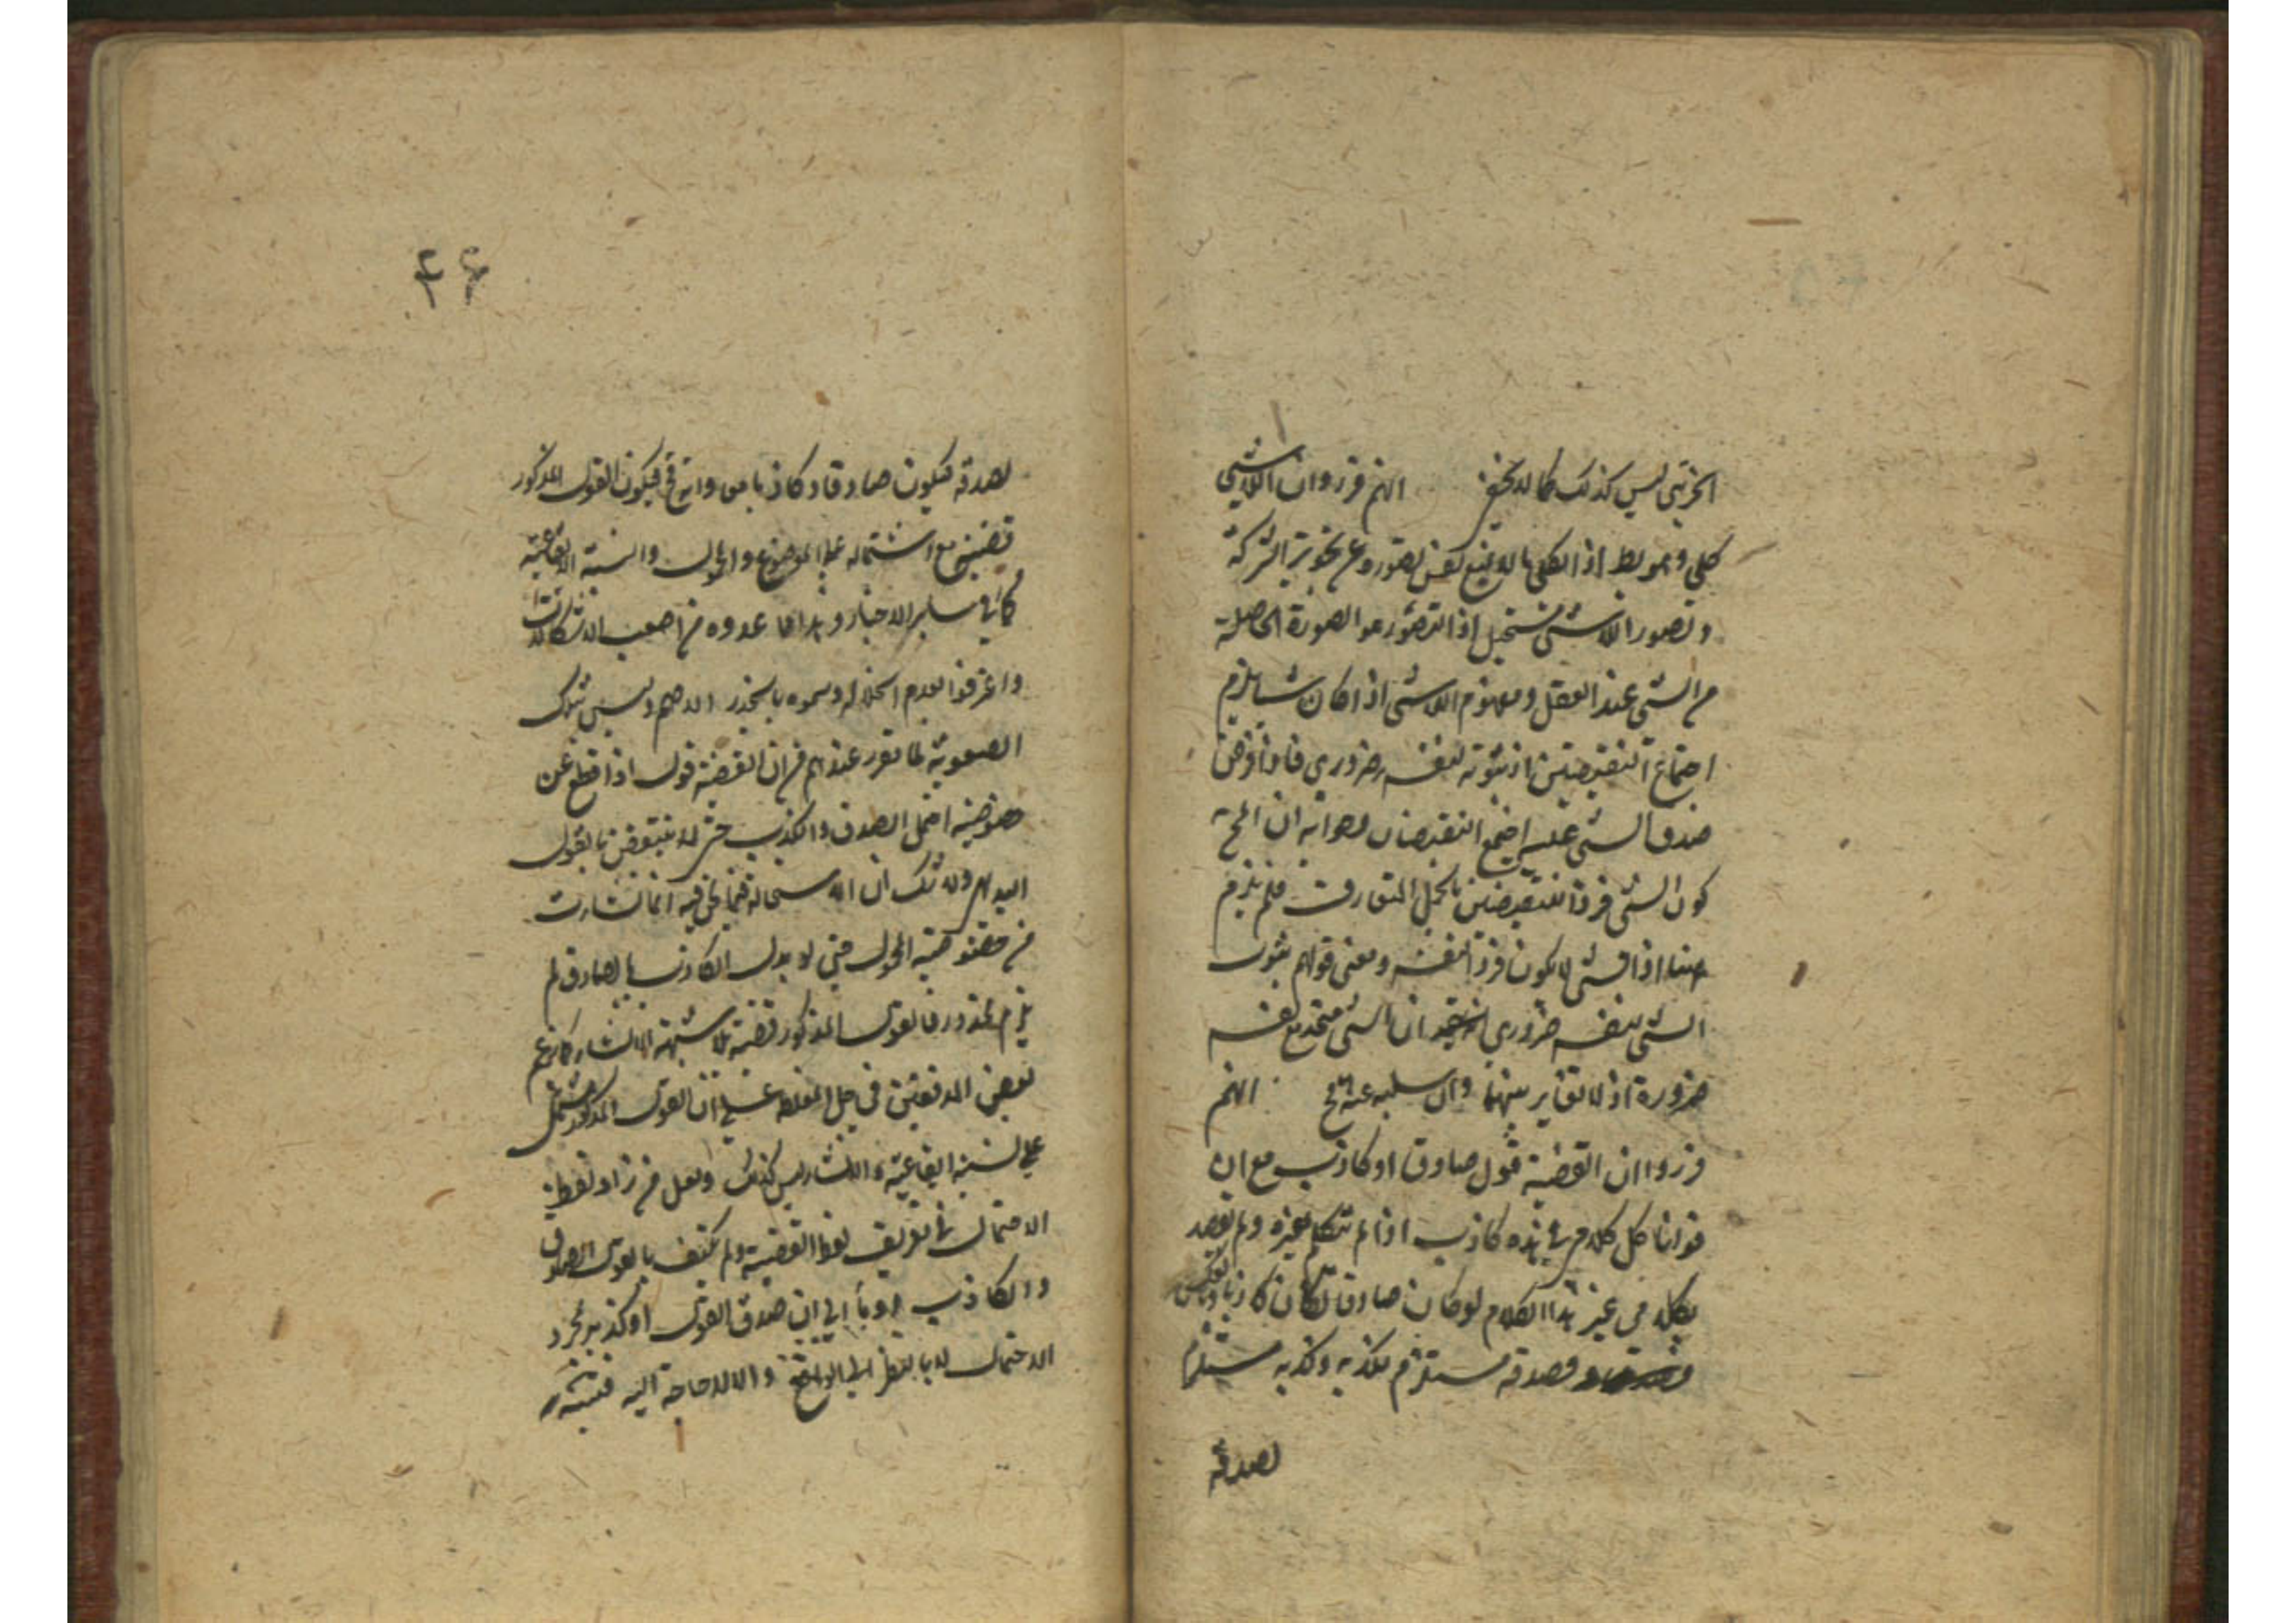 الجزئي ليس كذلك كما لا يخفى انهم قرروا ان اللاشي
كلي وهو بط اذ الكلي ما لا يمنع نفس تصوره عن تجويز الشركة
وتصور اللاشي مستحيل اذ التصور هو الصورة الحاصلة
من الشي عند العقل ومفهوم اللاشي اذا كان شيا يلزم
اجتماع النقيضين اذ ثبوته لنفسه ضروري فاذا فرض
صدق الشي عليه اجتمع النقيضان وجوابه ان المح
كون الشي فردا لنقيضين بالحمل المتعارف فلم يلزم
ههنا اذ الشي لا يكون فردا لنفسه ومعنى قولهم ثبوت
الشي لنفسه ضروري ان الشي متحد مع نفسه
ضرورة اذ لا تغاير بينهما وان سلبه عنه مح انهم
قرروا ان القضية قول صادق او كاذب مع ان
قولنا كل كلامي في هذه كاذب اذا لم تتكلم بغيره ولم يقصد
بكلامي غير هذا الكلام لو كان صادقا لكان كاذبا وبالعكس
فصدقه مستلزم لكذبه وكذبه مستلزما
لصدقه
٤٦
لصدقه فيكون صادقا وكاذبا معا وانه مح فيكون القول المذكور
قضية مع اشتماله على الموضوع والمحمول والنسبة الايقاعية
كما في ساير الاخبار وهذا مما عدوه من اصعب الاشكالات
واعترفوا بعدم انحلاله وسموه بالجذر الاصم وليس بتلك
الصعوبة لما تقرر عندهم من ان القضية قول اذا قطع عن
خصوصيته احتمل الصدق والكذب حتى لا ينتقض بالقول
البديهي ولا شك ان الاستحالة فيما نحن فيه انما نشات
من خصوصية المحمول حتى لو بدل الكاذب بالصادق لم
يلزم المحذور فالقول المذكور قضية بلا شبهة لا انشا كما زعم
بعض المدققين في حل المغلطة على ان القول المذكور مشتمل
على نسبة ايقاعية والانشا ليس كذلك ولعل من زاد لفظ
الاحتمال في تعريف لفظ القضية ولم يكتف بالقول الصادق
والكاذب اومأ الى ان صدق القول او كذبه بمجرد
الاحتمال لا بالنظر الى الواقع والا لا حاجة اليه فتنبه